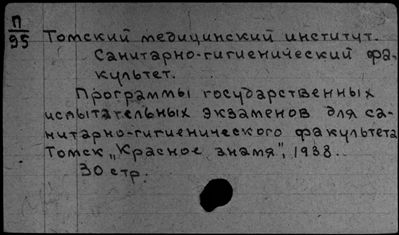 П
95
Томский медицинский институт.
Санитарно-гигиенический фа-
культет.
Программы государственных
испытательных экзаменов для са-
нитарно-гигиенического факультета
Томск „Красное знамя", 1938.
30 стр.